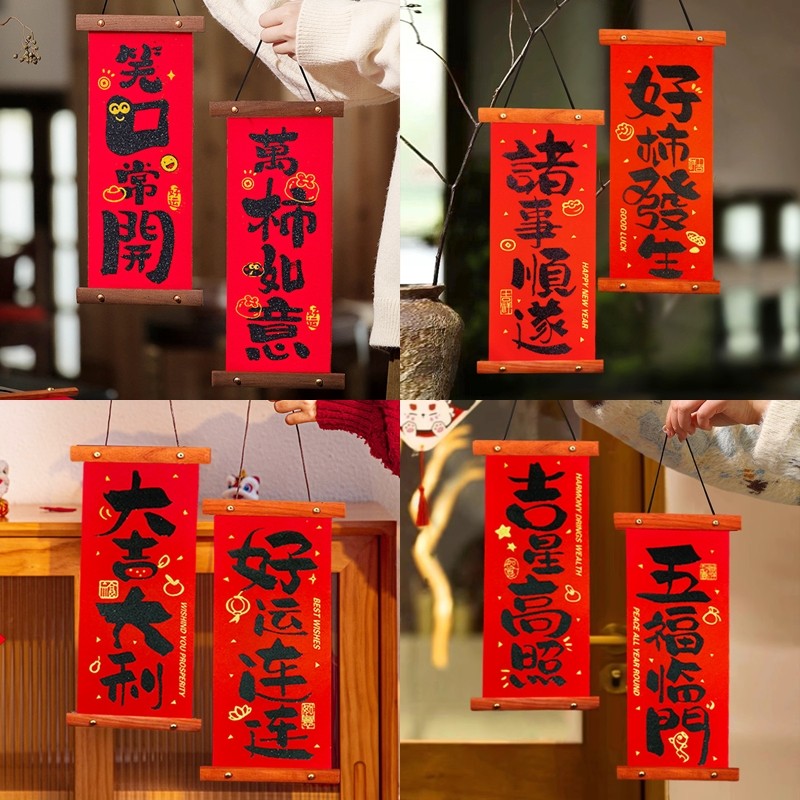 笑口常開
萬柿如意
諸事順遂
HAPPY NEW YEAR
好柿發生
GOOD LUCK
大吉大利
WISHIND YOU PROSPERITY
好运连连
BEST WISHES
吉星高照
HARMONY DRINGS WEALTH
五福临門
PEACE ALL YEAR ROUND